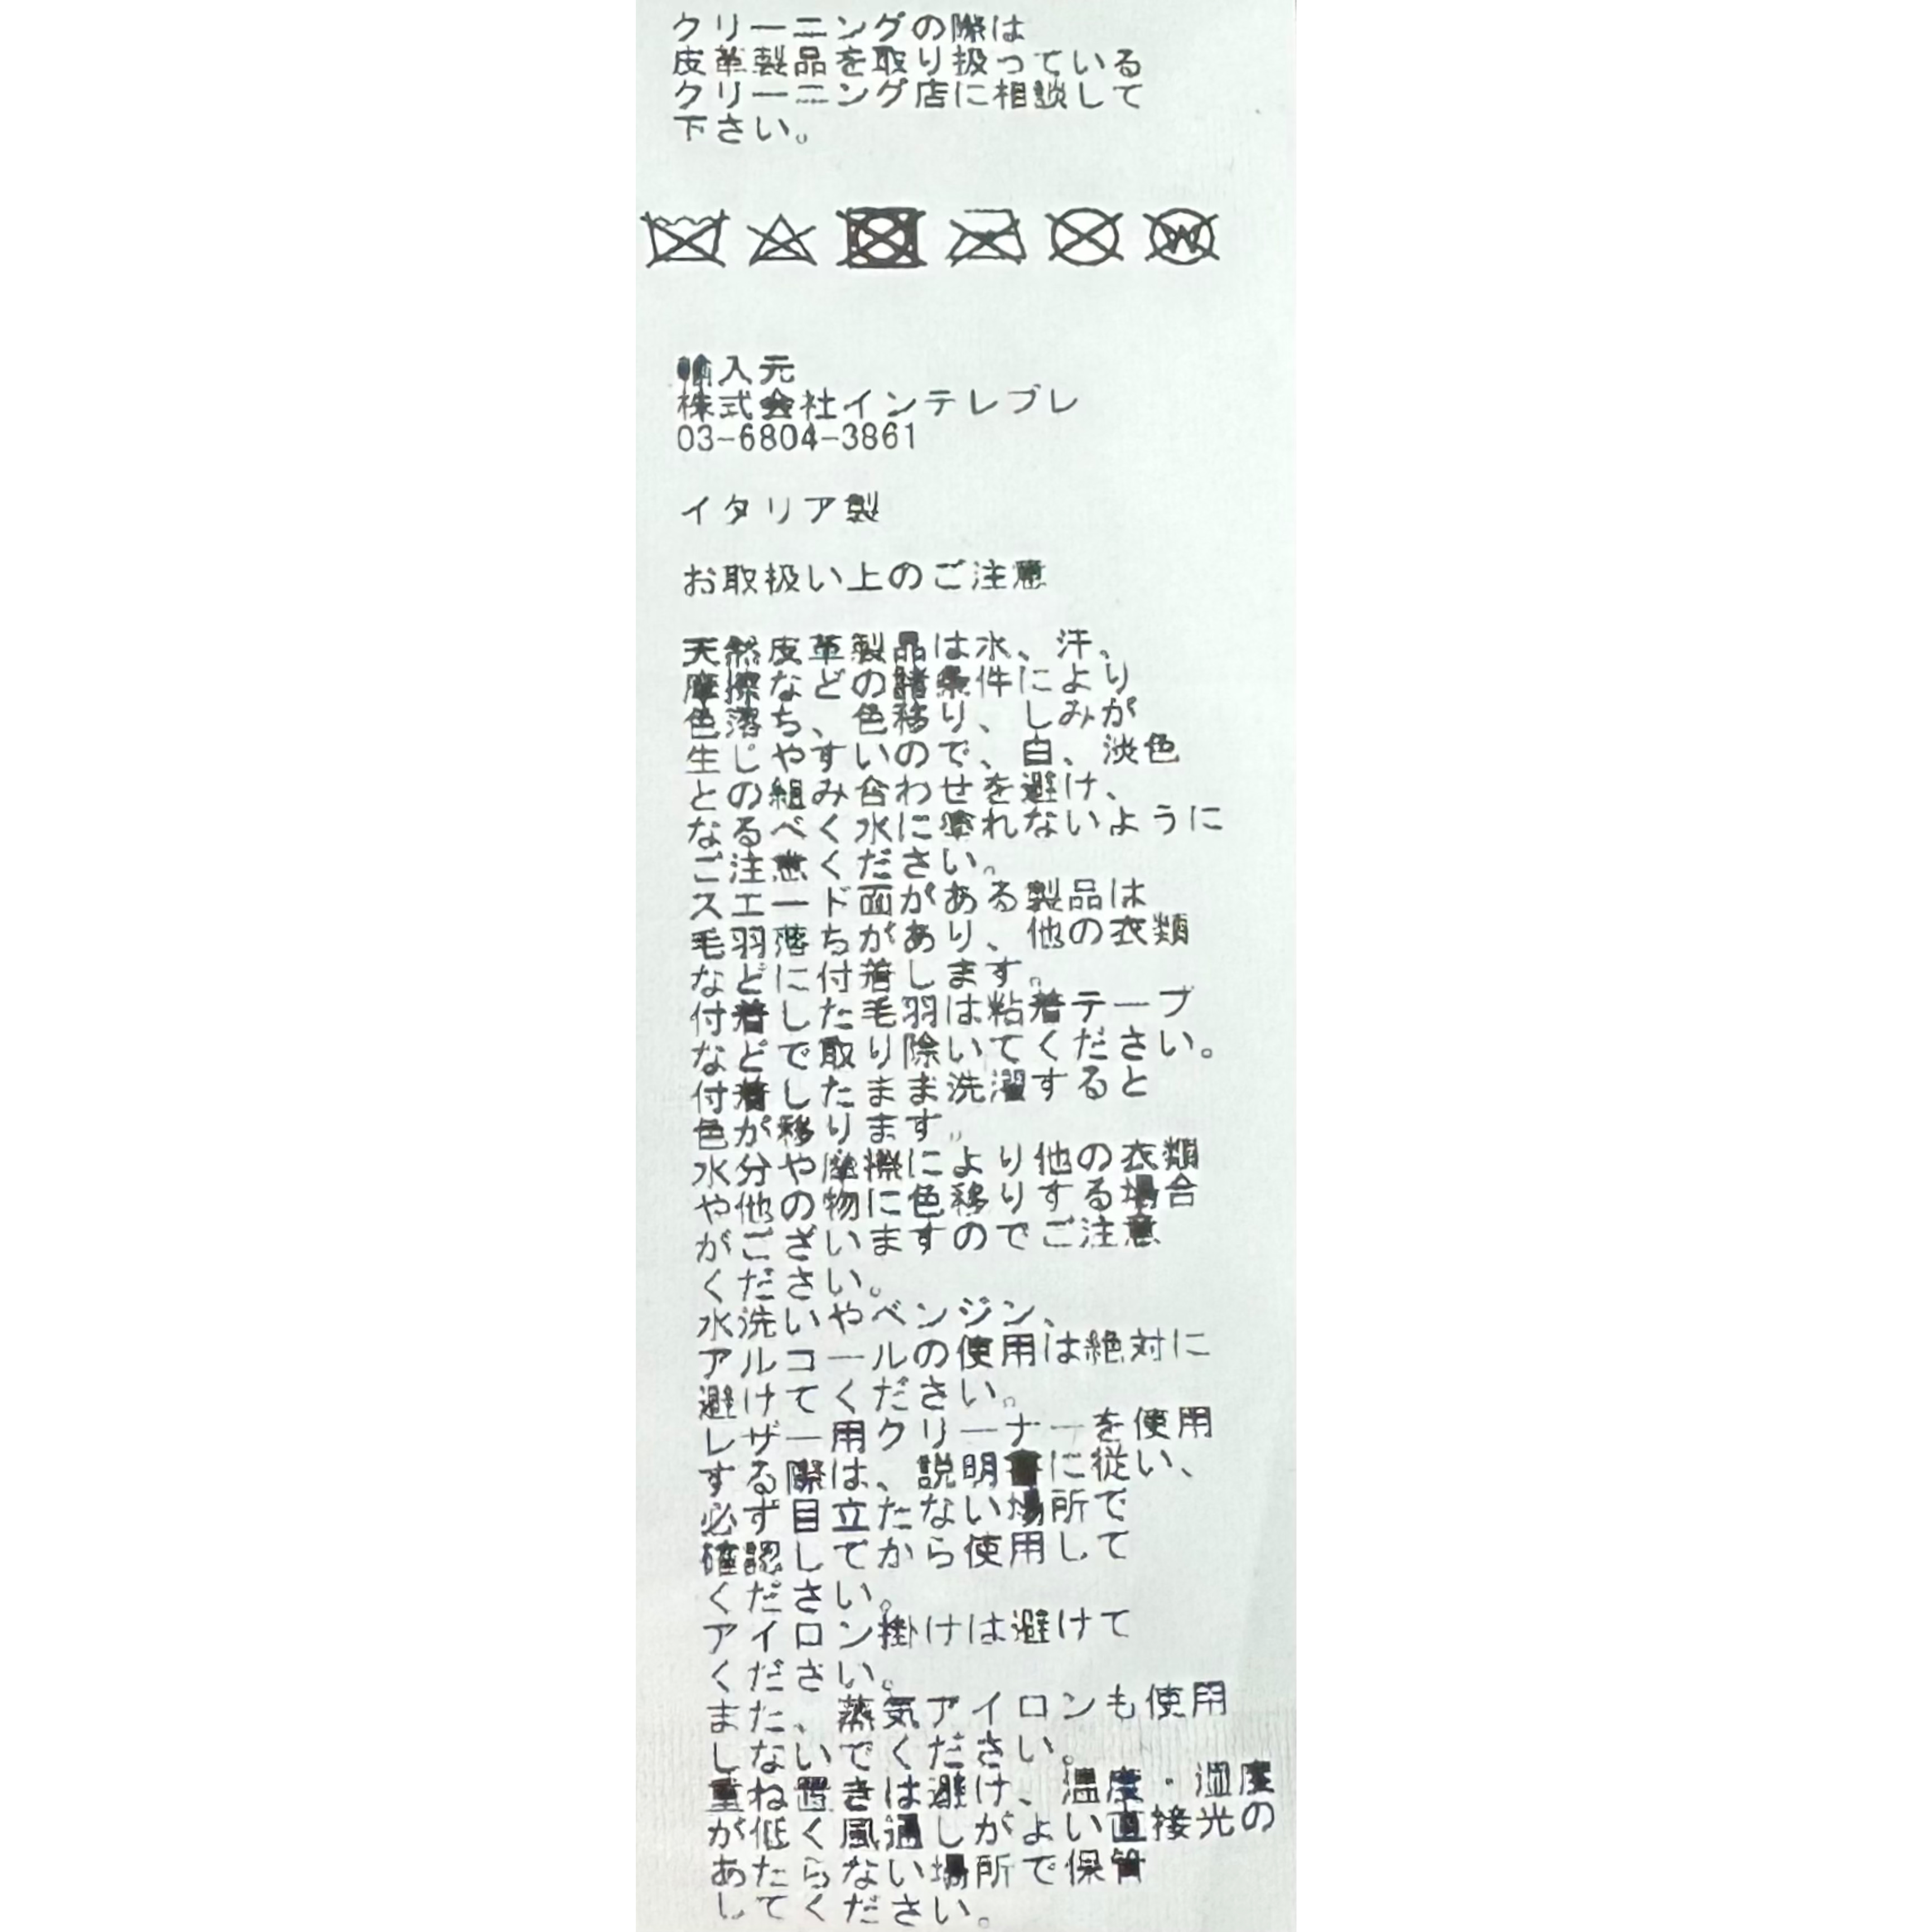 クリーニングの際は
皮革製品を取り扱っている
クリーニング店に相談して
下さい。
W
輸入元
株式会社インテレプレ
03-6804-3861
イタリア製
お取扱い上のご注意
天然皮革製品は水、汗、
摩擦などの諸条件により
色落ち、色移り、しみが
生じやすいので、白、淡色
との組み合わせを避け、
なるべく水に濡れないように
ご注意ください。
スエード面がある製品は
毛羽落ちがあり、他の衣類
などに付着します。
付着した毛羽は粘着テープ
などで取り除いてください。
付着したまま洗濯すると
色が移ります。
水分や摩擦により他の衣類
や他の物に色移りする場合
がございますのでご注意
ください。
水洗いやベンジン、
アルコールの使用は絶対に
避けてください。
レザー用クリーナーを使用
する際は、説明書に従い、
必ず目立たない場所で
確認してから使用して
ください。
アイロン掛けは避けて
ください。
また、蒸気アイロンも使用
しないでください。
重ね置きは避け、温度・湿度
が低く風通しがよい直接光の
あたらない場所で保管
してください。